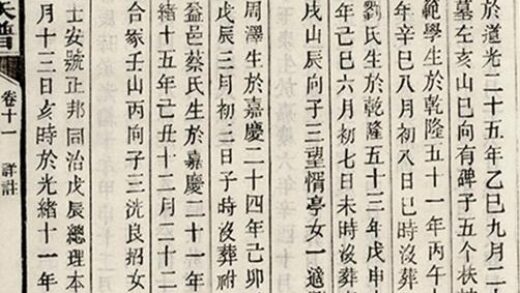 於道光二十五年乙巳九月二十
墓左亥山巳向有碑子五个扶
範學生於乾隆五十一年丙午十
年辛巳八月初八日巳時沒葬
劉氏生於乾隆五十三年戊申
年己巳六月初七日未時沒葬
戌山辰向子三望惰亭女一適
周澤生於嘉慶二十四年己卯
戊辰三月初三日子時沒葬祔
益邑蔡氏生於嘉慶二十一年
緒十五年己丑十二月二十二
合冢壬山丙向子三洗良招女
士安號正邦同治戊辰總理本
月十三日亥時於光緒十一年
氏譜
卷十一
詳註